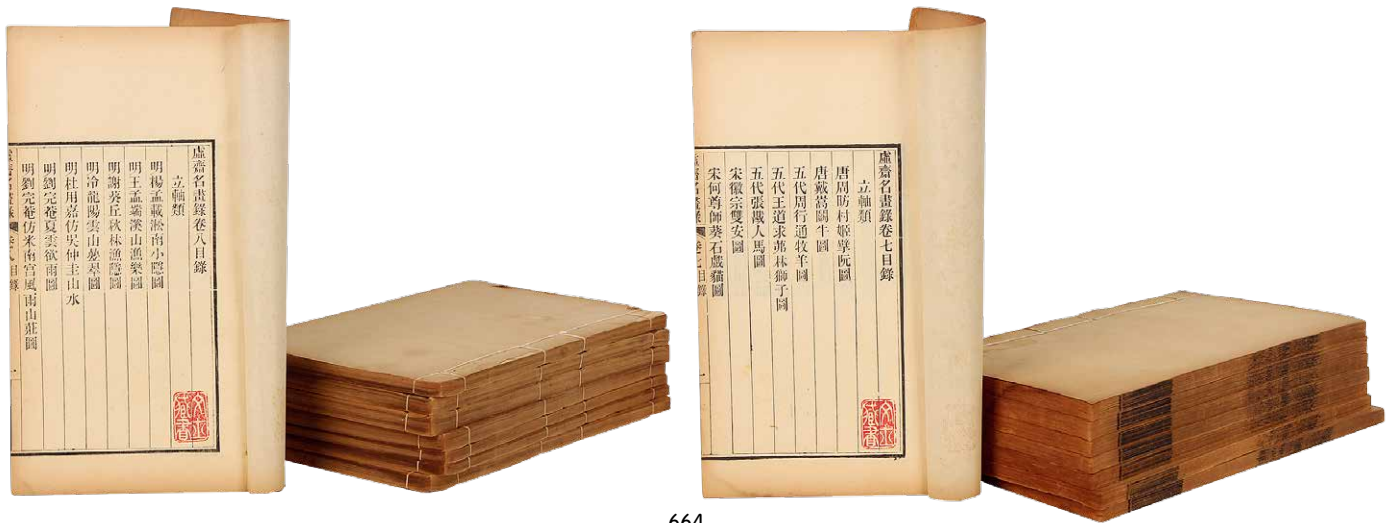 虛齋名畫錄卷八目錄
立軸類
明楊孟載淞南小隱圖
明王孟端溪山漁樂圖
明謝葵丘秋林漁隱圖
明冷龍陽雲山疊翠圖
明杜用嘉仿吳仲圭山水
明劉完菴夏雲欲雨圖
明劉完菴仿米南宮風雨山莊圖
虛齋名畫錄卷七目錄
立軸類
唐周昉村姬擘阮圖
唐戴嵩鬬牛圖
五代周行通牧羊圖
五代王道求茀林獅子圖
五代張戡人馬圖
宋徽宗雙安圖
宋何尊師葵石戲貓圖
664